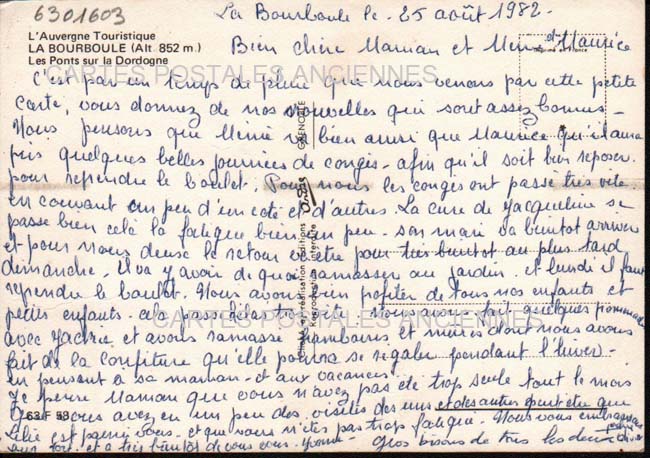 6301603
La Bourboule le 25 août 1982.
L'Auvergne Touristique
LA BOURBOULE (Alt. 852 m.)
Les Ponts sur la Dordogne
Bien chère Maman et Mimi et Maurice
CARTES POSTALES ANCIENNES
C'est par un temps de pluie que nous venons par cette petite
carte, vous donner de nos nouvelles qui sont assez bonnes.
Nous pensons que Mimie va bien ainsi que Maurice qu'il aura
pris quelques belles journées de congés. afin qu'il soit bien reposer.
pour reprendre le boulet. Pour nous les congés ont passé très vite
en courant un peu d'un coté et d'autres. La cure de Jacqueline se
passe bien celà la fatigue bien un peu. son mari va bientot arriver
et pour nous deux le retour pour très bientot au plus tard
dimanche. Il va y avoir de quoi ramasser au jardin. et lundi il faut
reprendre le boulot. Nous avons bien profiter de tous nos enfants et
petits enfants. cela passe très vite. Nous avons fait quelques promenades
CARTES POSTALES ANCIENNES
avec et avons ramassé framboises et mures dont nous avons
fait de la confiture qu'elle pourra se régaler pendant l'hiver.
en pensant à sa maman. et aux vacances.
Je pense Maman que vous n'avez pas été trop seule tout le mois
63 F 53
vous avez eu un peu des visites des uns et des autres peut être que
est parmi vous. et que vous n'êtes pas trop fatigué. Nous vous embrassons
fort. et à très bientot de vous Yvonne.
Gros bisous de tous les deux
GRENOBLE
réalisation éditions
Reproduction interdite